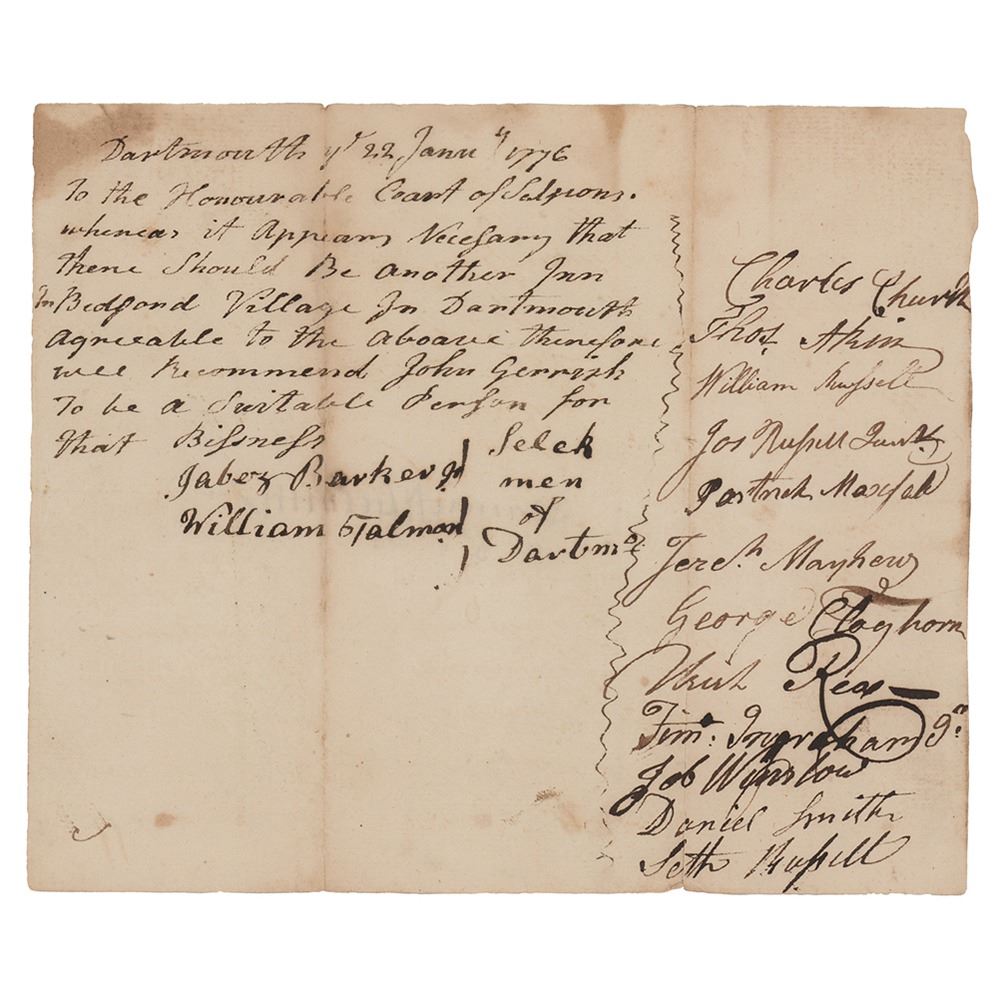 Dartmouth ye 22 Janu y 1776
To the Honourable Coart of Seſsions.
whereas it Appears Neceſsary that
there Should Be another Inn
In Bedford Village In Dartmouth
agreeable to the aboave therefore
wee Recommend John Gerrish
To be a Suitable Person for
that Bissness
Jabez Barker Jr
William Talman
Selek
men
of
Dartmo
Charles Church
Thos Akin
William Ruſsell
Jos Ruſsell Junr
Patrick Maxfield
Jereh Mayhew
George Claghorn
Rex
Tim: Ingraham Jr
Job Winslow
Daniel Smith
Seth Ruſsell